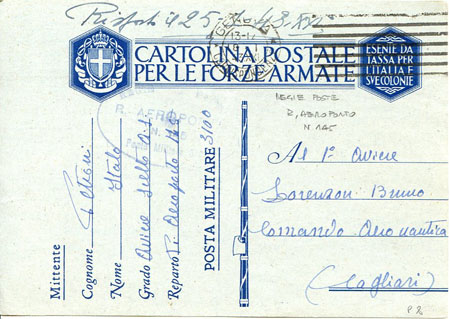 Risposto il 25-1-43 XXI
CARTOLINA POSTALE
PER LE FORZE ARMATE
ESENTE DA
TASSA PER
L'ITALIA E
SUE COLONIE
REGIE POSTE
R, AEROPORTO
N 145
R. AEROPO
Al 1° Aviere
Lorenzoni Bruno
Comando Aeronautica
(Cagliari)
P2
Mittente
Cognome
Nome Italo
Grado Aviere Scelto
Reparto Aeroporto
POSTA MILITARE 3100